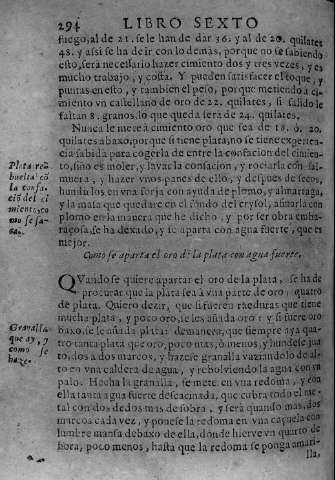 294 LIBRO SEXTO
fuego, al de 21. se le han de dar 36. y al de 20. quilates
48. y assi se ha de ir con lo demàs, porque no se sabiendo
esto, serà necessario hazer cimiento dos y tres vezes, y es
mucho trabajo, y costa. Y pueden satisfacer el toque, y
puntas en esto, y tambien el peso, porque metiendo a ci-
miento vn castellano de oro de 22. quilates, si salido le
faltan 8. granos, lo que queda serà de 24. quilates.
Nunca se meterà cimiento oro que sea de 18. ò 20.
quilates abaxo, porque si tiene plata, no se tiene experien-
cia sabida para cogerla de entre la confacion del cimien-
to, sino es moler, y lavar la confacion, y rociarla con sal-
muera, y hazer vnos panes de ello, y despues de secos,
hundirlos en vna forja con ayuda de plomo, y almartaga,
y la masa que quedare en el fondo del crysol, afinarla con
plomo en la manera que he dicho, y por ser obra emba-
raçosa, se ha dexado, y se aparta con agua fuerte, que es
mejor.
Plata re-
buelta cõ
la confa-
ciõ del ci-
miento, co
mo se sa-
ca.
Como se aparta el oro de la plata con agua fuerte.
QVando se quiere apartar el oro de la plata, se ha de
procurar que la plata sea à vna parte de oro, quatro
de plata. Quiero dezir, que si fueren rieduras que tiene
mucha plata, y poco oro, se les añada oro: y si fuere oro
baxo, se le añada plata: de manera, que siempre aya qua-
tro tanta plata que oro, poco mas, ò menos, y hundese jun-
to, dos à dos marcos, y hazese granalla vaziandolo de al-
to en vna caldera de agua, y rebolviendo la agua con vn
palo. Hecha la granalla, se mete en vna redoma, y con
ella tanta agua fuerte desfacinada, que cubra todo el me-
tal con dos dedos mas de sobra, y serà quando mas, dos
marcos cada vez, y ponese la redoma en vna caçuela con
lumbre mansa debaxo de ella, donde hierve vn quarto de
hora, poco menos, hasta que la redoma se ponga amari-
lla,
Granalla
que ay, y
como se
haze.